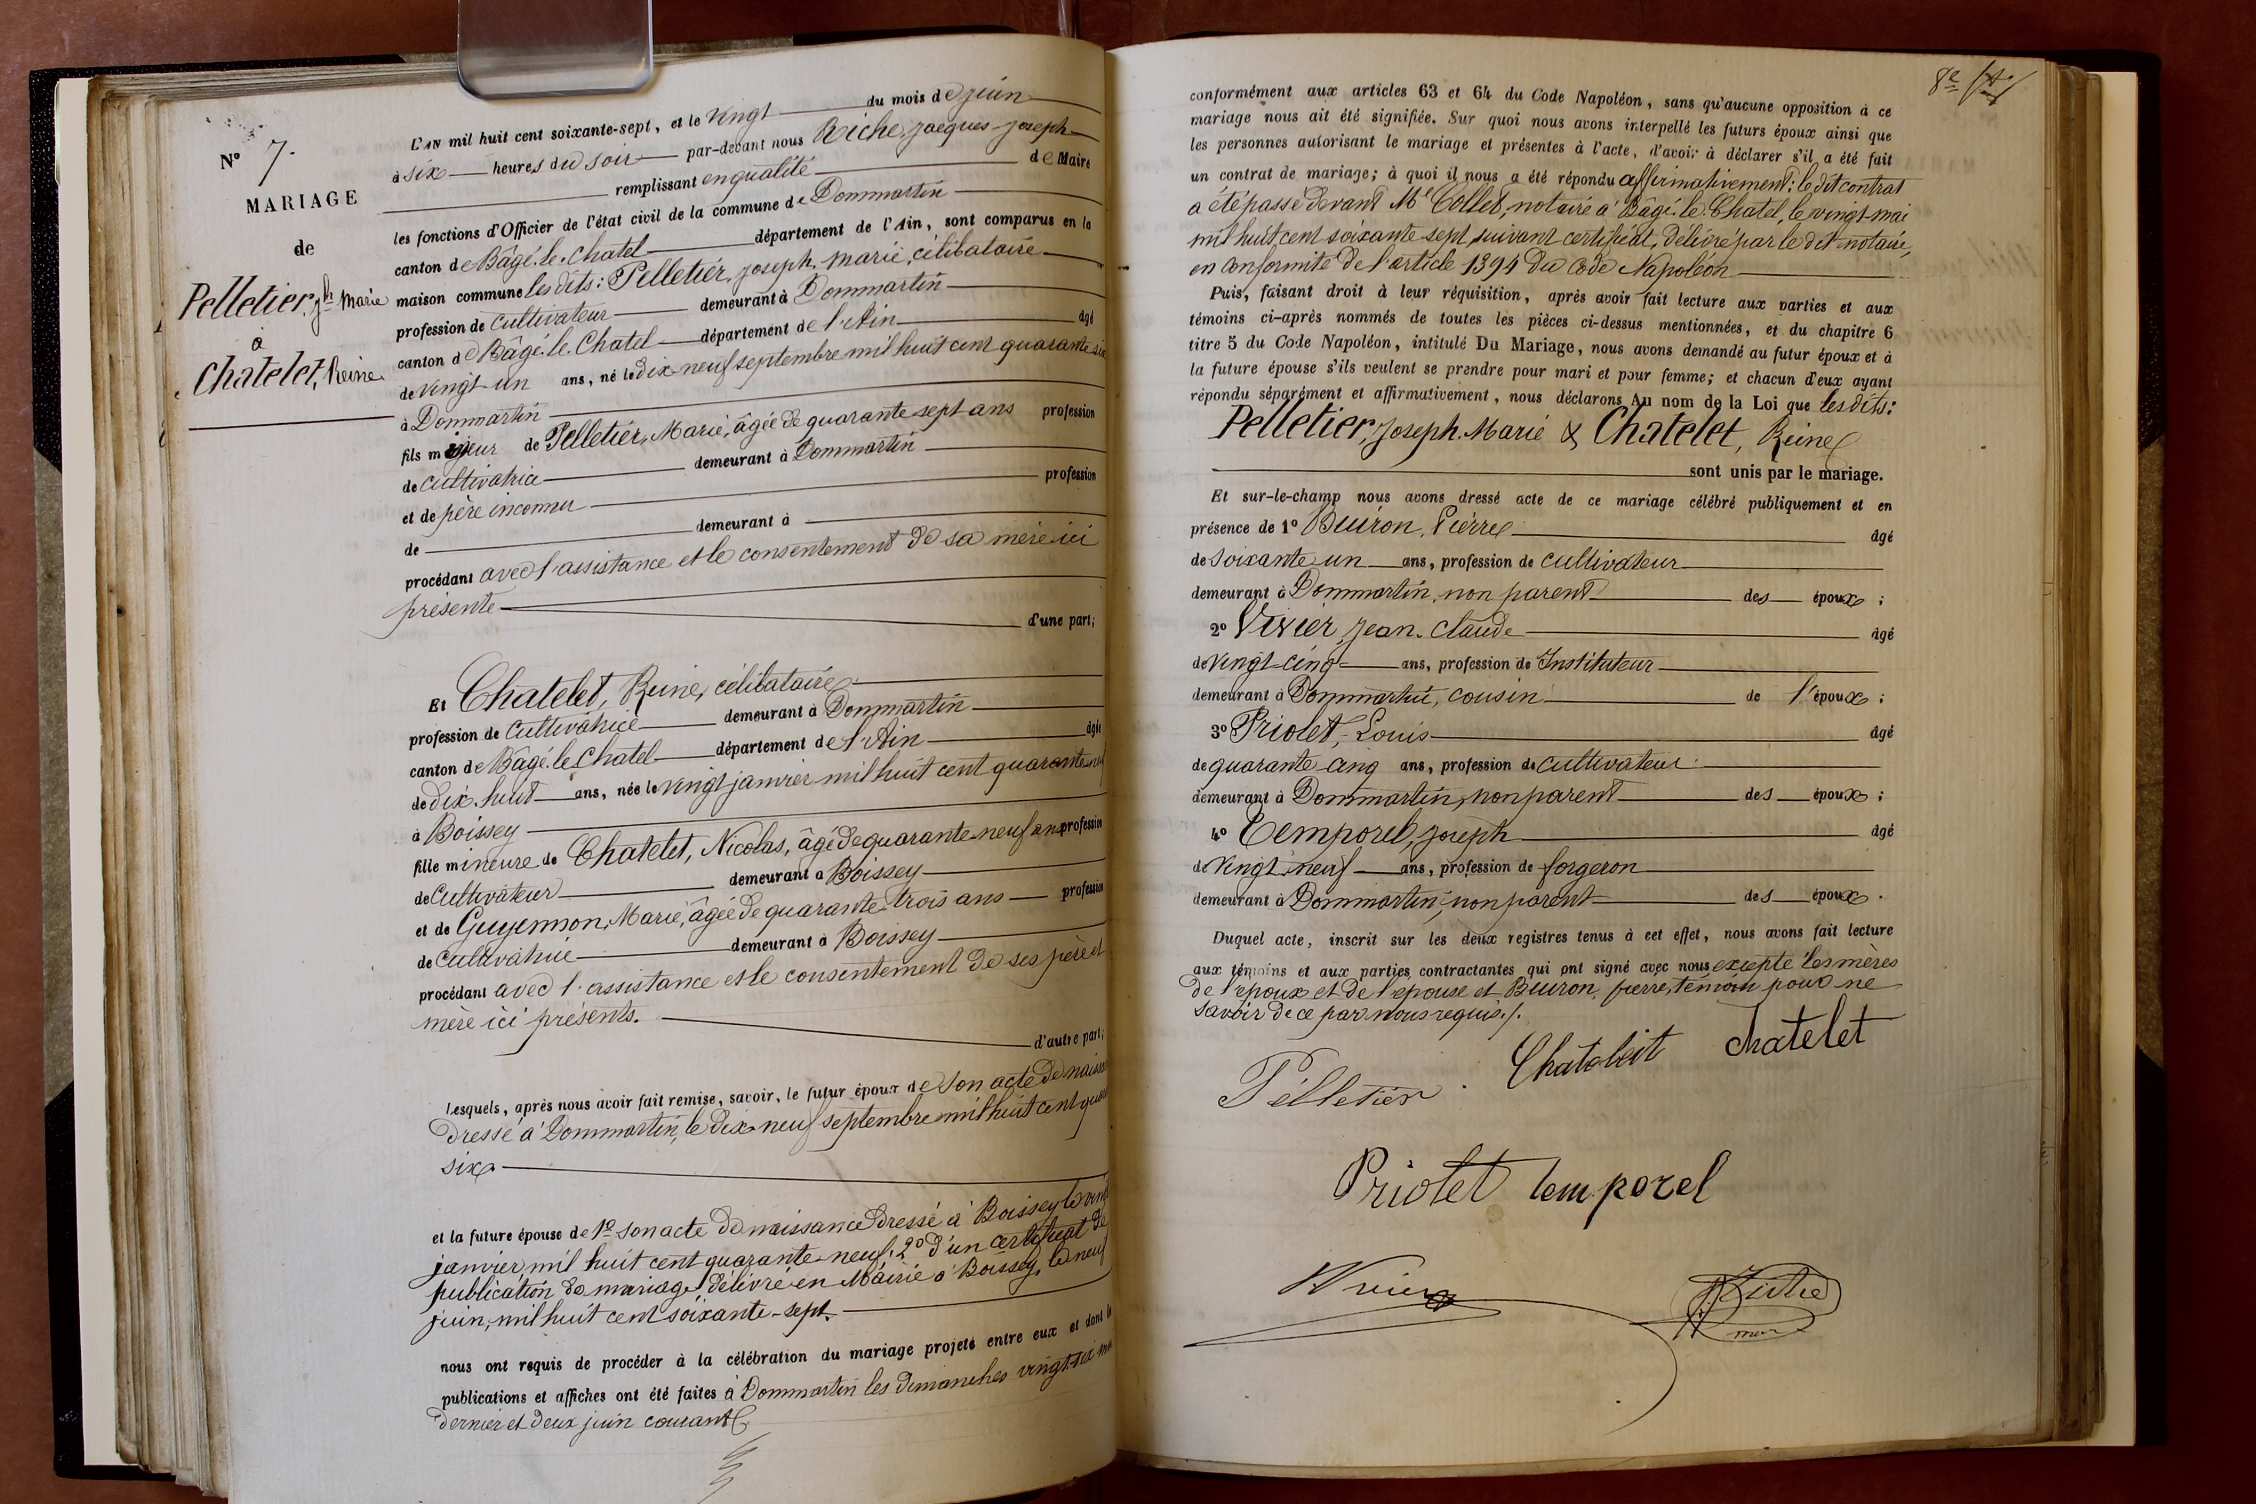 N° 7.
MARIAGE
de
Pelletier, Jh Marie
à
Chatelet, Reine
L'AN mil huit cent soixante-sept, et le vingt du mois de juin
à six heures du soir par-devant nous Riche, Jacques-Joseph
remplissant en qualité de Maire
les fonctions d'Officier de l'état civil de la commune de Dommartin
canton de Bâgé-le-Chatel département de l'Ain, sont comparus en la
maison commune les dits : Pelletier, Joseph, Marie, célibataire
profession de cultivateur demeurant à Dommartin
canton de Bâgé-le-Chatel département de l'Ain âgé
de vingt-un ans, né le dix-neuf septembre mil huit cent quarante six
à Dommartin
fils majeur de Pelletier, Marie, âgée de quarante sept ans profession
de cultivatrice demeurant à Dommartin
et de père inconnu profession
de demeurant à
procédant avec l'assistance et le consentement de sa mère ici
présente
d'une part;
Et Chatelet, Reine, célibataire
profession de cultivatrice demeurant à Dommartin
canton de Bâgé-le-Chatel département de l'Ain âgée
de dix-huit ans, née le vingt janvier mil huit cent quarante neuf
à Boissey
fille mineure de Chatelet, Nicolas, âgé de quarante-neuf ans profession
de cultivateur demeurant à Boissey
et de Guyennon, Marie, âgée de quarante trois ans profession
de cultivatrice demeurant à Boissey
procédant avec l'assistance et le consentement de ses père et
mère ici présents.
d'autre part;
Lesquels, après nous avoir fait remise, savoir, le futur époux de son acte de naissance
dressé à Dommartin, le dix-neuf septembre mil huit cent quarante
six
et la future épouse de 1° son acte de naissance dressé à Boissey le vingt
janvier mil huit cent quarante-neuf. 2° d'un certificat de
publication de mariage délivré en Mairie à Boissey, le neuf
juin, mil huit cent soixante-sept.
nous ont requis de procéder à la célébration du mariage projeté entre eux et dont les
publications et affiches ont été faites à Dommartin les dimanches vingt-six mai
dernier et deux juin courant
8e
conformément aux articles 63 et 64 du Code Napoléon, sans qu'aucune opposition à ce
mariage nous ait été signifiée. Sur quoi nous avons interpellé les futurs époux ainsi que
les personnes autorisant le mariage et présentes à l'acte, d'avoir à déclarer s'il a été fait
un contrat de mariage; à quoi il nous a été répondu affirmativement : le dit contrat
a été passé devant Me Collet, notaire à Bâgé-le-Chatel, le vingt mai
mil huit cent soixante sept, suivant certificat, délivré par le dit notaire,
en conformité de l'article 1394 du Code Napoléon
Puis, faisant droit à leur réquisition, après avoir fait lecture aux parties et aux
témoins ci-après nommés de toutes les pièces ci-dessus mentionnées, et du chapitre 6
titre 5 du Code Napoléon, intitulé Du Mariage, nous avons demandé au futur époux et à
la future épouse s'ils veulent se prendre pour mari et pour femme; et chacun d'eux ayant
répondu séparément et affirmativement, nous déclarons Au nom de la Loi que les dits :
Pelletier, Joseph-Marie & Chatelet, Reine
sont unis par le mariage.
Et sur-le-champ nous avons dressé acte de ce mariage célébré publiquement et en
présence de 1° Buiron, Pierre âgé
de soixante-un ans, profession de cultivateur
demeurant à Dommartin, non parent des époux ;
2° Vivier, Jean-Claude âgé
de vingt-cinq ans, profession de Instituteur
demeurant à Dommartin, cousin de l'époux ;
3° Priolet, Louis âgé
de quarante-cinq ans, profession de cultivateur
demeurant à Dommartin, non parent des époux ;
4° Temporel, Joseph âgé
de vingt-neuf ans, profession de forgeron
demeurant à Dommartin, non parent des époux.
Duquel acte, inscrit sur les deux registres tenus à cet effet, nous avons fait lecture
aux témoins et aux parties contractantes qui ont signé avec nous excepté les mères
de l'époux et de l'épouse et Buiron, pierre, témoin pour ne
savoir de ce par nous requis./.
Pélletier
Chatoleit
chatelet
Priolet
temporel
Vivier
Riche
mer